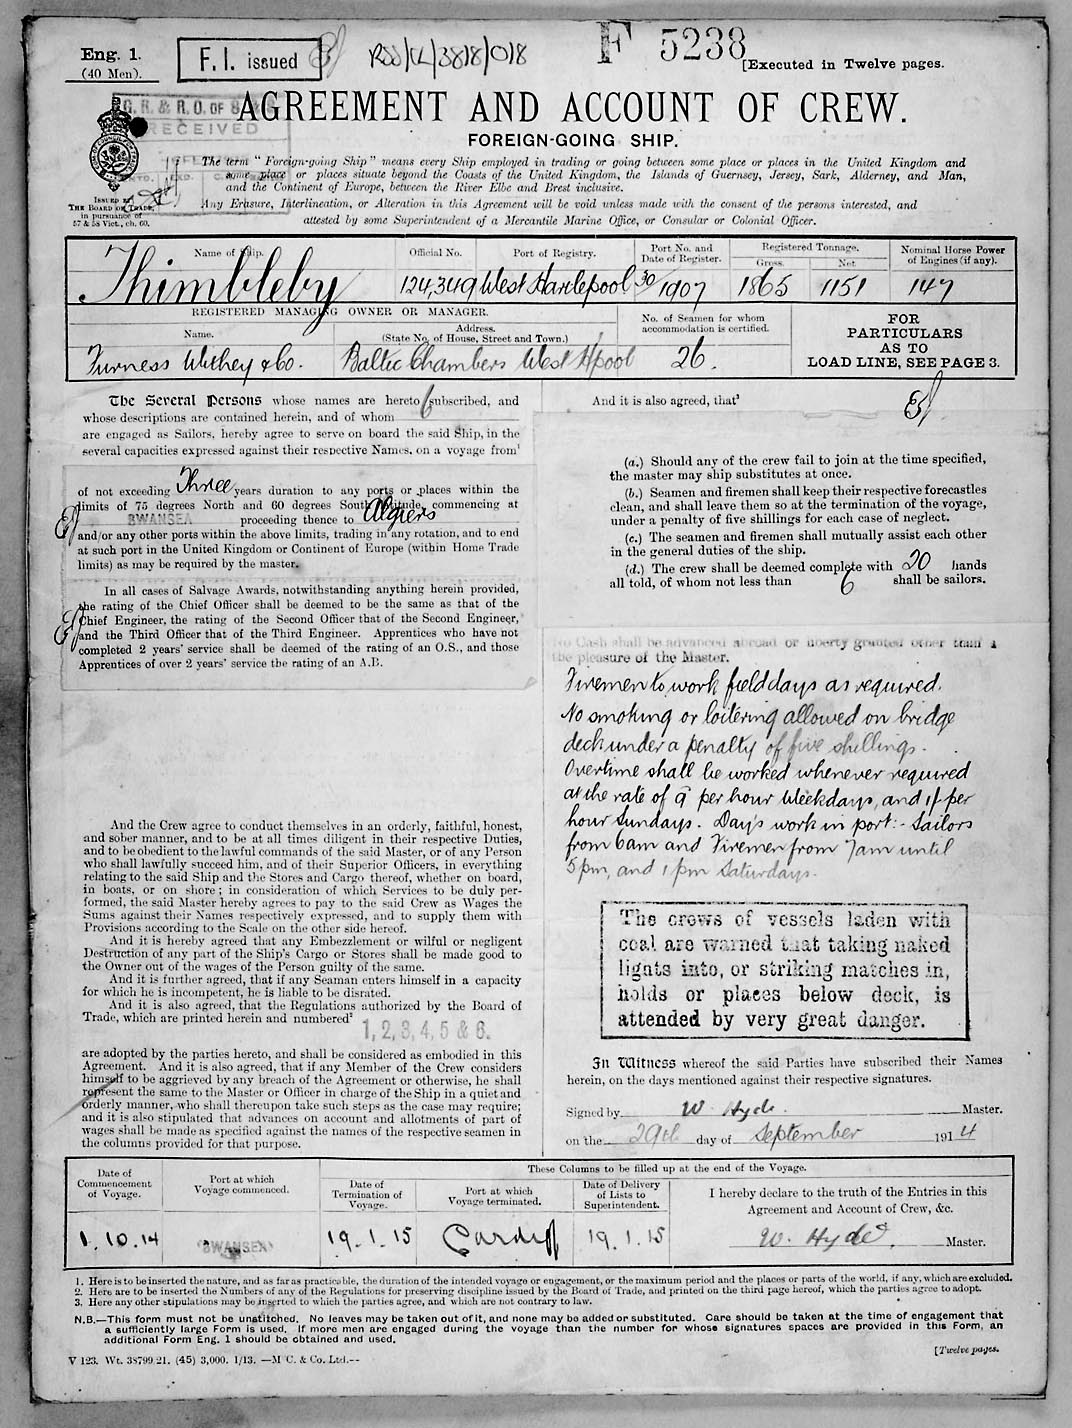 Eng. 1.
(40 Men).
F. I. issued
RSS/CL/3818/018
F 5238
[Executed in Twelve pages.
AGREEMENT AND ACCOUNT OF CREW.
FOREIGN-GOING SHIP.
RECEIVED
The term "Foreign-going Ship" means every Ship employed in trading or going between some place or places in the United Kingdom and
some place or places situate beyond the Coasts of the United Kingdom, the Islands of Guernsey, Jersey, Sark, Alderney, and Man,
and the Continent of Europe, between the River Elbe and Brest inclusive.
Any Erasure, Interlineation, or Alteration in this Agreement will be void unless made with the consent of the persons interested, and
attested by some Superintendent of a Mercantile Marine Office, or Consular or Colonial Officer.
ISSUED BY
THE BOARD OF TRADE,
in pursuance of
57 & 58 Vict., ch. 60.
Name of Ship.
Thimbleby
Official No.
124,349
Port of Registry.
West Hartlepool
Port No. and
Date of Register.
30/1907
Registered Tonnage.
Gross.
1865
Net.
1151
Nominal Horse Power
of Engines (if any).
147
REGISTERED MANAGING OWNER OR MANAGER.
Name.
Furness Withey & Co.
Address.
(State No. of House, Street and Town.)
Baltic Chambers West H'pool
No. of Seamen for whom
accommodation is certified.
26.
FOR
PARTICULARS
AS TO
LOAD LINE, SEE PAGE 3.
The Several Persons whose names are hereto subscribed, and
whose descriptions are contained herein, and of whom 6
are engaged as Sailors, hereby agree to serve on board the said Ship, in the
several capacities expressed against their respective Names, on a voyage from¹
of not exceeding Three years duration to any ports or places within the
limits of 75 degrees North and 60 degrees South latitude, commencing at
SWANSEA proceeding thence to Algiers
and/or any other ports within the above limits, trading in any rotation, and to end
at such port in the United Kingdom or Continent of Europe (within Home Trade
limits) as may be required by the master.
In all cases of Salvage Awards, notwithstanding anything herein provided,
the rating of the Chief Officer shall be deemed to be the same as that of the
Chief Engineer, the rating of the Second Officer that of the Second Engineer,
and the Third Officer that of the Third Engineer. Apprentices who have not
completed 2 years' service shall be deemed of the rating of an O.S., and those
Apprentices of over 2 years' service the rating of an A.B.
And the Crew agree to conduct themselves in an orderly, faithful, honest,
and sober manner, and to be at all times diligent in their respective Duties,
and to be obedient to the lawful commands of the said Master, or of any Person
who shall lawfully succeed him, and of their Superior Officers, in everything
relating to the said Ship and the Stores and Cargo thereof, whether on board,
in boats, or on shore; in consideration of which Services to be duly per-
formed, the said Master hereby agrees to pay to the said Crew as Wages the
Sums against their Names respectively expressed, and to supply them with
Provisions according to the Scale on the other side hereof.
And it is hereby agreed that any Embezzlement or wilful or negligent
Destruction of any part of the Ship's Cargo or Stores shall be made good to
the Owner out of the wages of the Person guilty of the same.
And it is further agreed, that if any Seaman enters himself in a capacity
for which he is incompetent, he is liable to be disrated.
And it is also agreed, that the Regulations authorized by the Board of
Trade, which are printed herein and numbered²
1, 2, 3, 4, 5 & 6.
are adopted by the parties hereto, and shall be considered as embodied in this
Agreement. And it is also agreed, that if any Member of the Crew considers
himself to be aggrieved by any breach of the Agreement or otherwise, he shall
represent the same to the Master or Officer in charge of the Ship in a quiet and
orderly manner, who shall thereupon take such steps as the case may require;
and it is also stipulated that advances on account and allotments of part of
wages shall be made as specified against the names of the respective seamen in
the columns provided for that purpose.
And it is also agreed, that³
(a.) Should any of the crew fail to join at the time specified,
the master may ship substitutes at once.
(b.) Seamen and firemen shall keep their respective forecastles
clean, and shall leave them so at the termination of the voyage,
under a penalty of five shillings for each case of neglect.
(c.) The seamen and firemen shall mutually assist each other
in the general duties of the ship.
(d.) The crew shall be deemed complete with 20 hands
all told, of whom not less than 6 shall be sailors.
No Cash shall be advanced abroad or liberty granted other than a
the pleasure of the Master.
Firemen to work field days as required.
No smoking or loitering allowed on bridge
deck under a penalty of five shillings.
Overtime shall be worked whenever required
at the rate of 9d per hour Weekdays, and 1/- per
hour Sundays. Days work in port:- Sailors
from 6am and Firemen from 7am until
5pm, and 1pm Saturdays.
The crews of vessels laden with
coal are warned that taking naked
lights into, or striking matches in,
holds or places below deck, is
attended by very great danger.
In Witness whereof the said Parties have subscribed their Names
herein, on the days mentioned against their respective signatures.
Signed by W. Hyde. Master.
on the 29th day of September 1914
Date of
Commencement
of Voyage.
1.10.14
Port at which
Voyage commenced.
SWANSEA
These Columns to be filled up at the end of the Voyage.
Date of
Termination of
Voyage.
19.1.15
Port at which
Voyage terminated.
Cardiff
Date of Delivery
of Lists to
Superintendent.
19.1.15
I hereby declare to the truth of the Entries in this
Agreement and Account of Crew, &c.
W. Hyde. Master.
1. Here is to be inserted the nature, and as far as practicable, the duration of the intended voyage or engagement, or the maximum period and the places or parts of the world, if any, which are excluded.
2. Here are to be inserted the Numbers of any of the Regulations for preserving discipline issued by the Board of Trade, and printed on the third page hereof, which the parties agree to adopt.
3. Here any other stipulations may be inserted to which the parties agree, and which are not contrary to law.
N.B.—This form must not be unstitched. No leaves may be taken out of it, and none may be added or substituted. Care should be taken at the time of engagement that
a sufficiently large Form is used. If more men are engaged during the voyage than the number for whose signatures spaces are provided in this Form, an
additional Form Eng. 1 should be obtained and used.
V 123. Wt. 38799.21. (45) 3,000. 1/13. —M'C. & Co. Ltd.--
[Twelve pages.